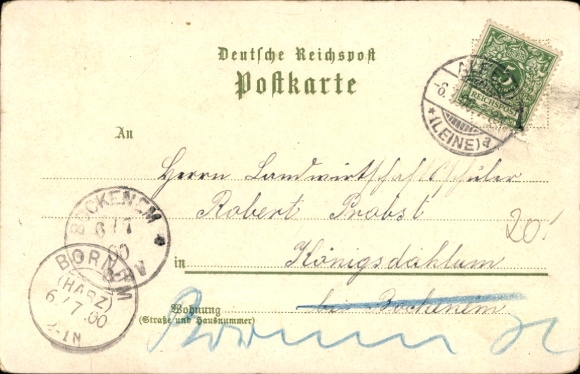 Deutsche Reichspost
Postkarte
ALFELD
-6.
*(LEINE)a
5
REICHSPOST
1
An
Herrn Landwirtschaftsschüler
Robert Probst
20.
in Königsdahlum
bei Bockenem
Wohnung
(Straße und Hausnummer)
BOCKENEM
6/7
00
BORNUM
(HARZ)
6/7.00
-1N
Bornum